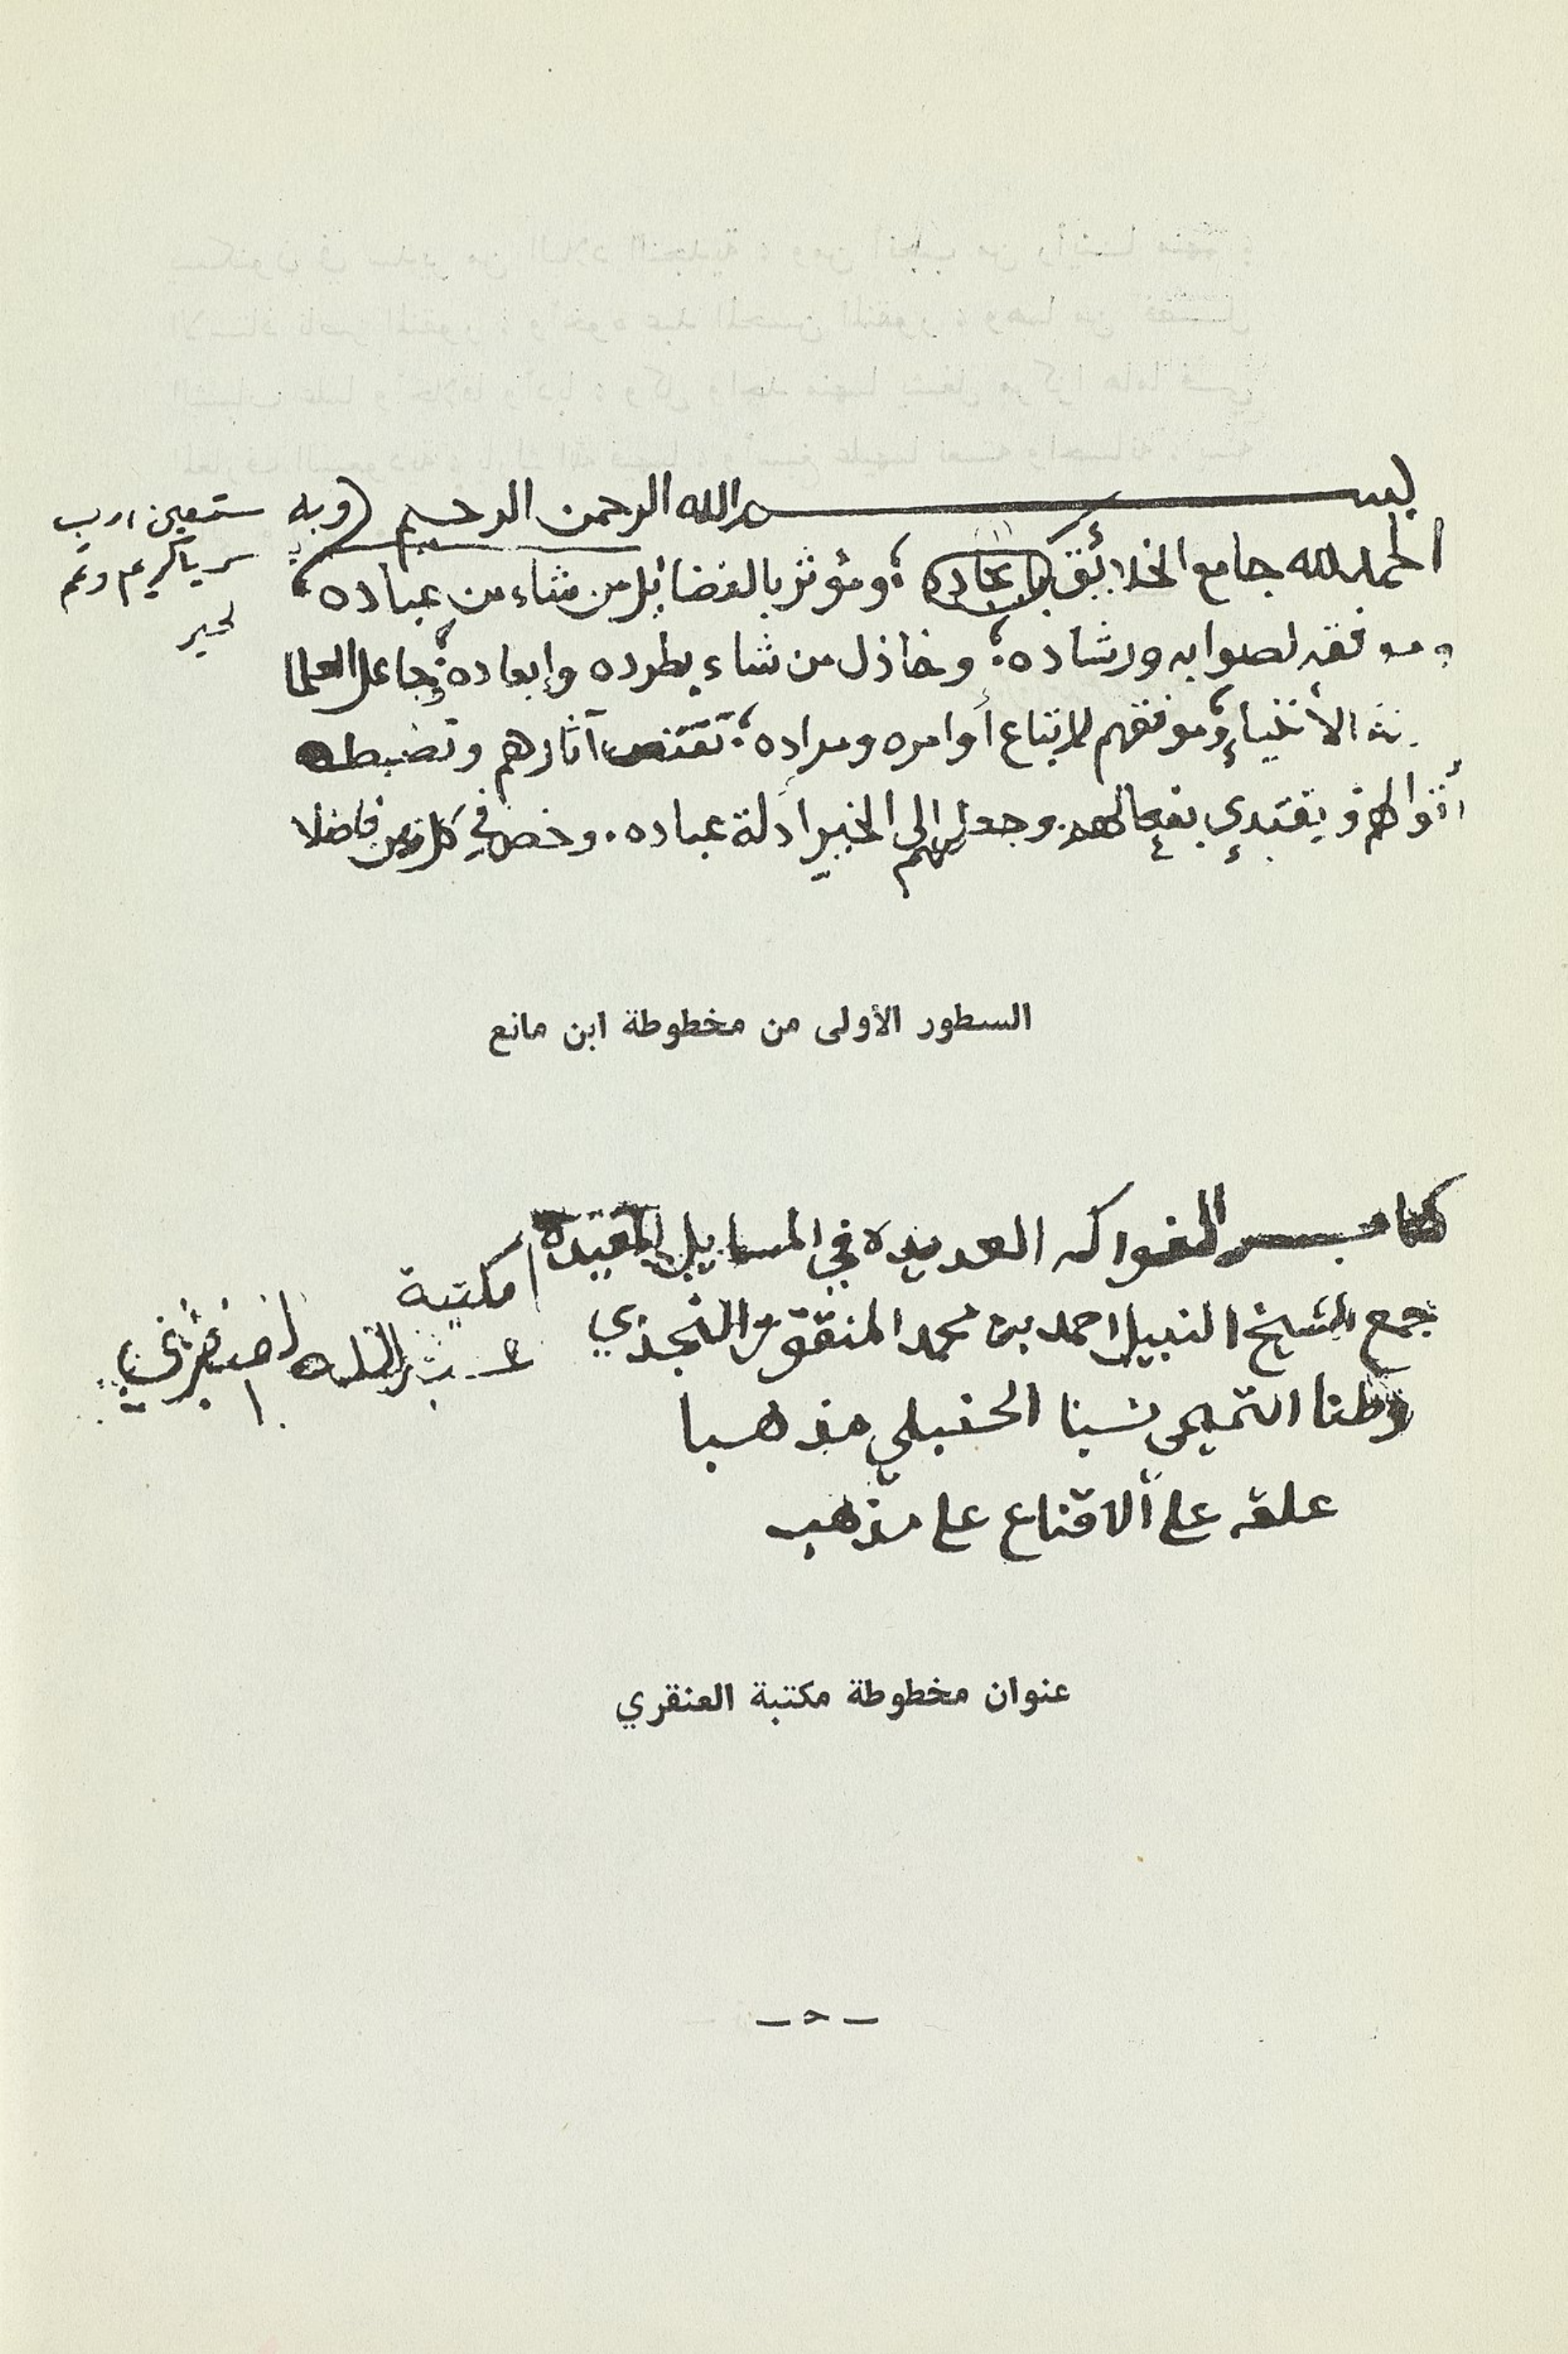 بسم الله الرحمن الرحيم (وبه نستعين يا رب
يسر يا كريم وتمم
بخير
الحمد لله جامع الخلائق ؛ ومؤثر بالفضائل من شاء من عباده ؛
وموفقه لصوابه ورشاده ؛ وخاذل من شاء بطرده وإبعاده ؛ جاعل العلما
الأنبياء ؛ وموفقهم لاتباع أوامره ومراده ؛ تقتص آثارهم وتضبط
أقوالهم ويقتدي بفعالهم . وجعلهم إلى الخير أدلة عباده . وخص في كل زمن فاضلا
السطور الأولى من مخطوطة ابن مانع
كتاب الفواكه العديدة في المسايل المفيدة
جمع الشيخ النبيل احمد بن محمد المنقور النجدي
وطنا التميمي نسبا الحنبلي مذهبا
علقه على الاقناع على مذهب
مكتبة
عبد الله العنقري
عنوان مخطوطة مكتبة العنقري
— ح —